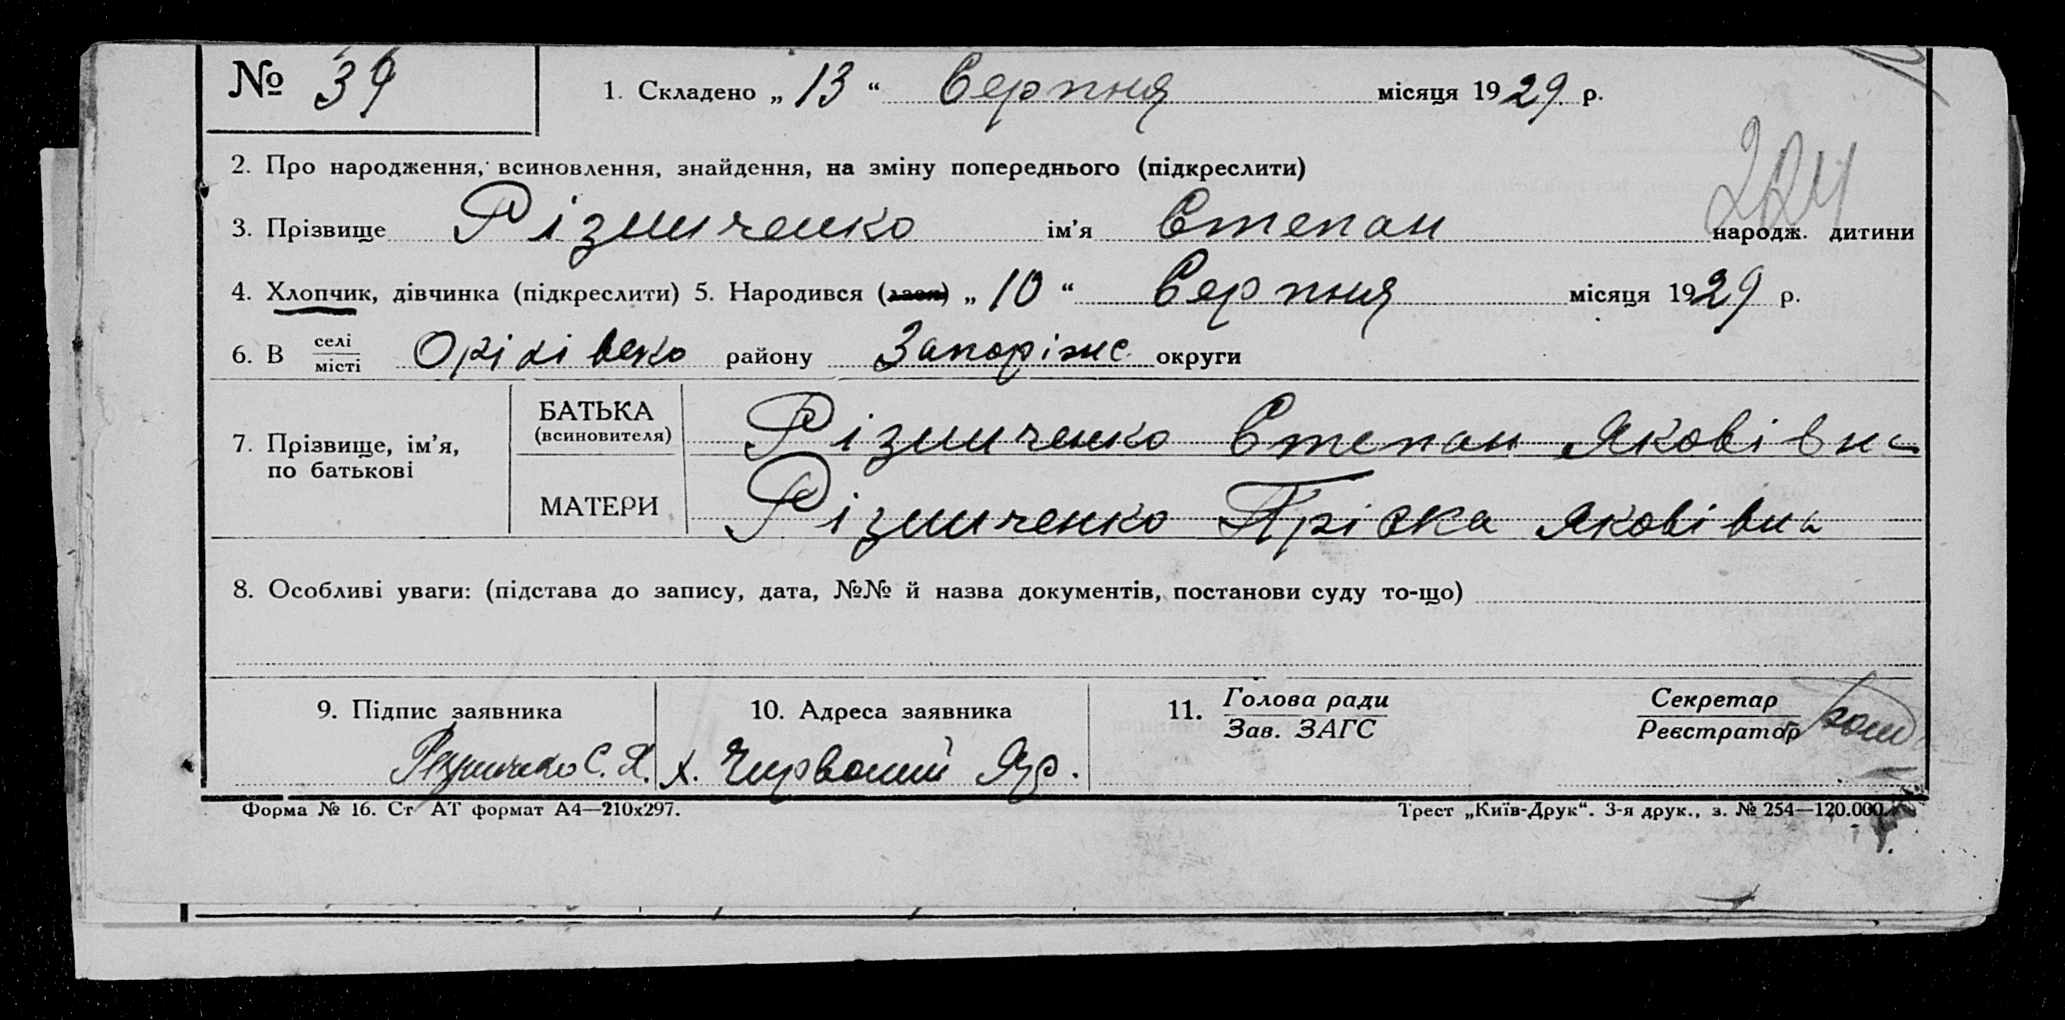 № 39 1. Складено „13“ Серпня місяця 1929. р.
2. Про народження, всиновлення, знайдення, на зміну попереднього (підкреслити)
224
3. Прізвище Різниченко ім'я Степан народж. дитини
4. Хлопчик, дівчинка (підкреслити) 5. Народився (лась) „10“ Серпня місяця 1929 р.
6. В селі місті Оріхівсько району Запоріжс. округи
7. Прізвище, ім'я, по батькові
БАТЬКА (всиновителя) Різниченко Степан Яковівич
МАТЕРИ Різниченко Пріска Яковівна
8. Особливі уваги: (підстава до запису, дата, №№ й назва документів, постанови суду то-що)
9. Підпис заявника 10. Адреса заявника 11. Голова ради Секретар
Зав. ЗАГС Реєстратор
Різниченко С. Я. х. Чирвоний Яр.
Форма № 16. Ст АТ формат А4—210х297. Трест „Київ-Друк“. 3-я друк., з. № 254—120.000.